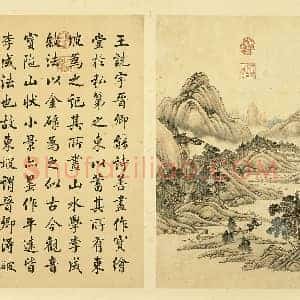 王詵字晉卿能詩善畫作寶繪
堂於私第之東蓄其所有東
坡為之記其所畫山水學李成
皴法以金碌為之似古今觀音
寶陁山狀小景亦墨作平遠皆
李成法也故東坡謂晉卿得破